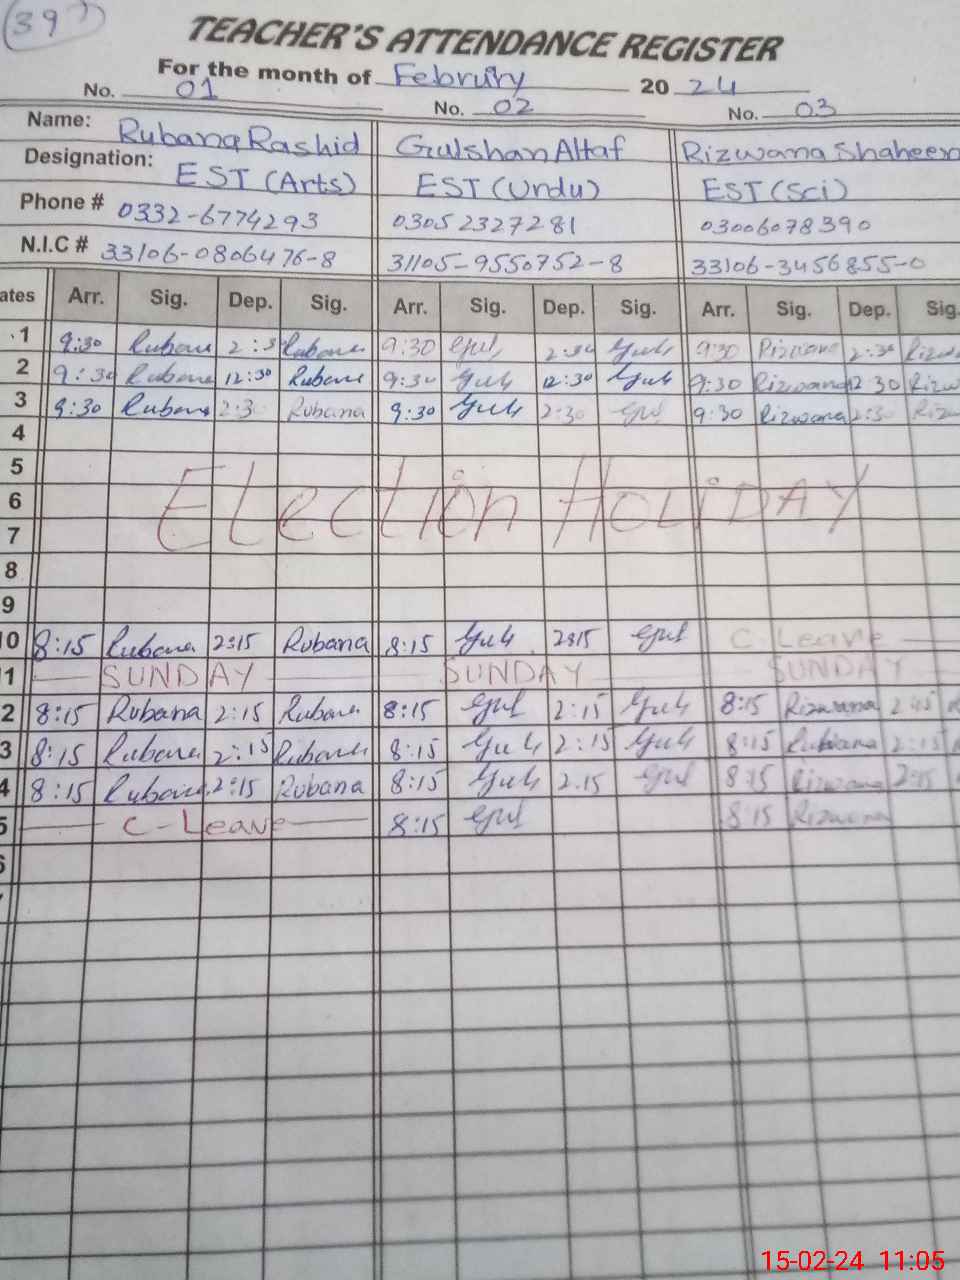 39
TEACHER'S ATTENDANCE REGISTER
For the month of Februiry 20 24
No. 01 No. 02 No. 03
Name: Rubana Rashid Gulshan Altaf Rizwana Shaheen
Designation: EST (Arts) EST (Urdu) EST (Sci)
Phone # 0332-6774293 03052327281 03006078390
N.I.C # 33106-0806476-8 31105-9550752-8 33106-3456855-0
ates Arr. Sig. Dep. Sig. Arr. Sig. Dep. Sig. Arr. Sig. Dep. Sig.
1 9:30 Rubana 2:3 Rubana 9:30 Gul 2:30 Gul 9:30 Rizwana 2:30 Rizw
2 9:30 Rubana 12:30 Rubana 9:30 Gul 12:30 Gul 9:30 Rizwana 12 30 Rizw
3 9:30 Rubana 2:30 Rubana 9:30 Gul 2:30 Gul 9:30 Rizwana 2:30 Riz
4
5
6 Election HOLiDAY
7
8
9
10 8:15 Rubana 2:15 Rubana 8:15 Gul 2:15 Gul C-Leave
1 SUNDAY SUNDAY SUNDAY
2 8:15 Rubana 2:15 Rubana 8:15 Gul 2:15 Gul 8:15 Rizwana 2:15
3 8:15 Rubana 2:15 Rubana 8:15 Gul 2:15 Gul 8:15 2:15
4 8:15 Rubana 2:15 Rubana 8:15 Gul 2.15 Gul 8:15 Rizwana 2:15
5 C-Leave 8:15 Gul 8:15 Rizwana
6
15-02-24 11:05